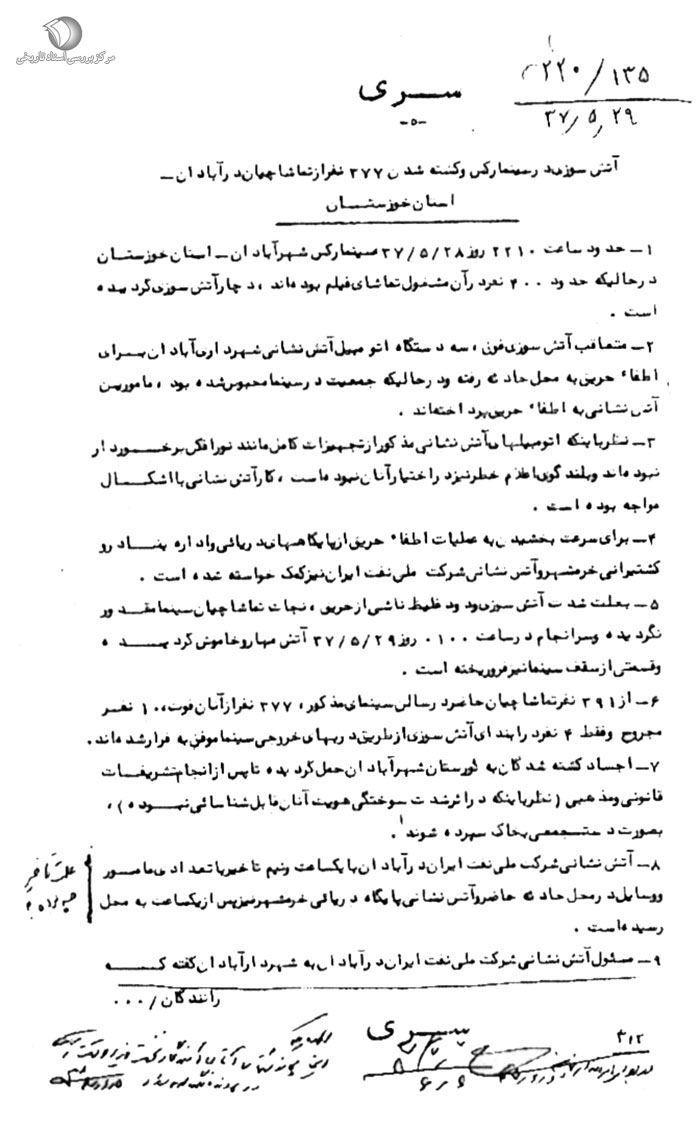 مرکز بررسی اسناد تاریخی
۲۲۰/۱۳۵
۳۷/۵/۲۹
سری
-۵-
آتش سوزی در سینما رکس و کشته شدن ۳۷۷ نفر از تماشاچیان در آبادان ـ
استان خوزستان
۱ـ حدود ساعت ۲۲۱۰ روز ۳۷/۵/۲۸ سینما رکس شهر آبادان ـ استان خوزستان
در حالیکه حدود ۴۰۰ نفر در آن مشغول تماشای فیلم بوده‌اند، دچار آتش سوزی گردیده
است.
۲ـ متعاقب آتش سوزی فوق، سه دستگاه اتومبیل آتش نشانی شهرداری آبادان برای
اطفاء حریق به محل حادثه رفته و در حالیکه جمعیت در سینما محبوس شده بود، مامورین
آتش نشانی به اطفاء حریق پرداخته‌اند.
۳ـ نظر باینکه اتومبیلهای آتش نشانی مذکور از تجهیزات کامل مانند نورافکن برخوردار
نبوده‌اند و بلندگوی اعلام خطر نیز در اختیار آنان نبوده است، کار آتش نشانی با اشکال
مواجه بوده است.
۴ـ برای سرعت بخشیدن به عملیات اطفاء حریق از پایگاههای دریائی و اداره بنادر و
کشتیرانی خرمشهر و آتش نشانی شرکت ملی نفت ایران نیز کمک خواسته شده است.
۵ـ بعلت شدت آتش سوزی و دود غلیظ ناشی از حریق، نجات تماشاچیان سینما مقدور
نگردیده و سرانجام در ساعت ۰۱۰۰ روز ۳۷/۵/۲۹ آتش مهار و خاموش گردیده
و قسمتی از سقف سینما نیز فرو ریخته است.
۶ـ از ۳۹۱ نفر تماشاچیان حاضر در سالن سینمای مذکور، ۳۷۷ نفر از آنان فوت، ۱۰ نفر
مجروح و فقط ۴ نفر در ابتدای آتش سوزی از طریق دربهای خروجی سینما موفق به فرار شده‌اند.
۷ـ اجساد کشته شدگان به گورستان شهر آبادان حمل گردیده تا پس از انجام تشریفات
قانونی و مذهبی (نظر باینکه در اثر شدت سوختگی هویت آنان قابل شناسائی نبوده)،
بصورت دسته جمعی بخاک سپرده شوند.
۸ـ آتش نشانی شرکت ملی نفت ایران در آبادان با یکساعت و نیم تاخیر با تعدادی مامور
و وسایل در محل حادثه حاضر و آتش نشانی پایگاه دریائی خرمشهر نیز پس از یکساعت به محل
رسیده است.
علت تاخیر
چه بوده؟
۹ـ مسئول آتش نشانی شرکت ملی نفت ایران در آبادان به شهردار آبادان گفته که
رانندگان/۰۰۰
سری
۳۱۲
۶/۶